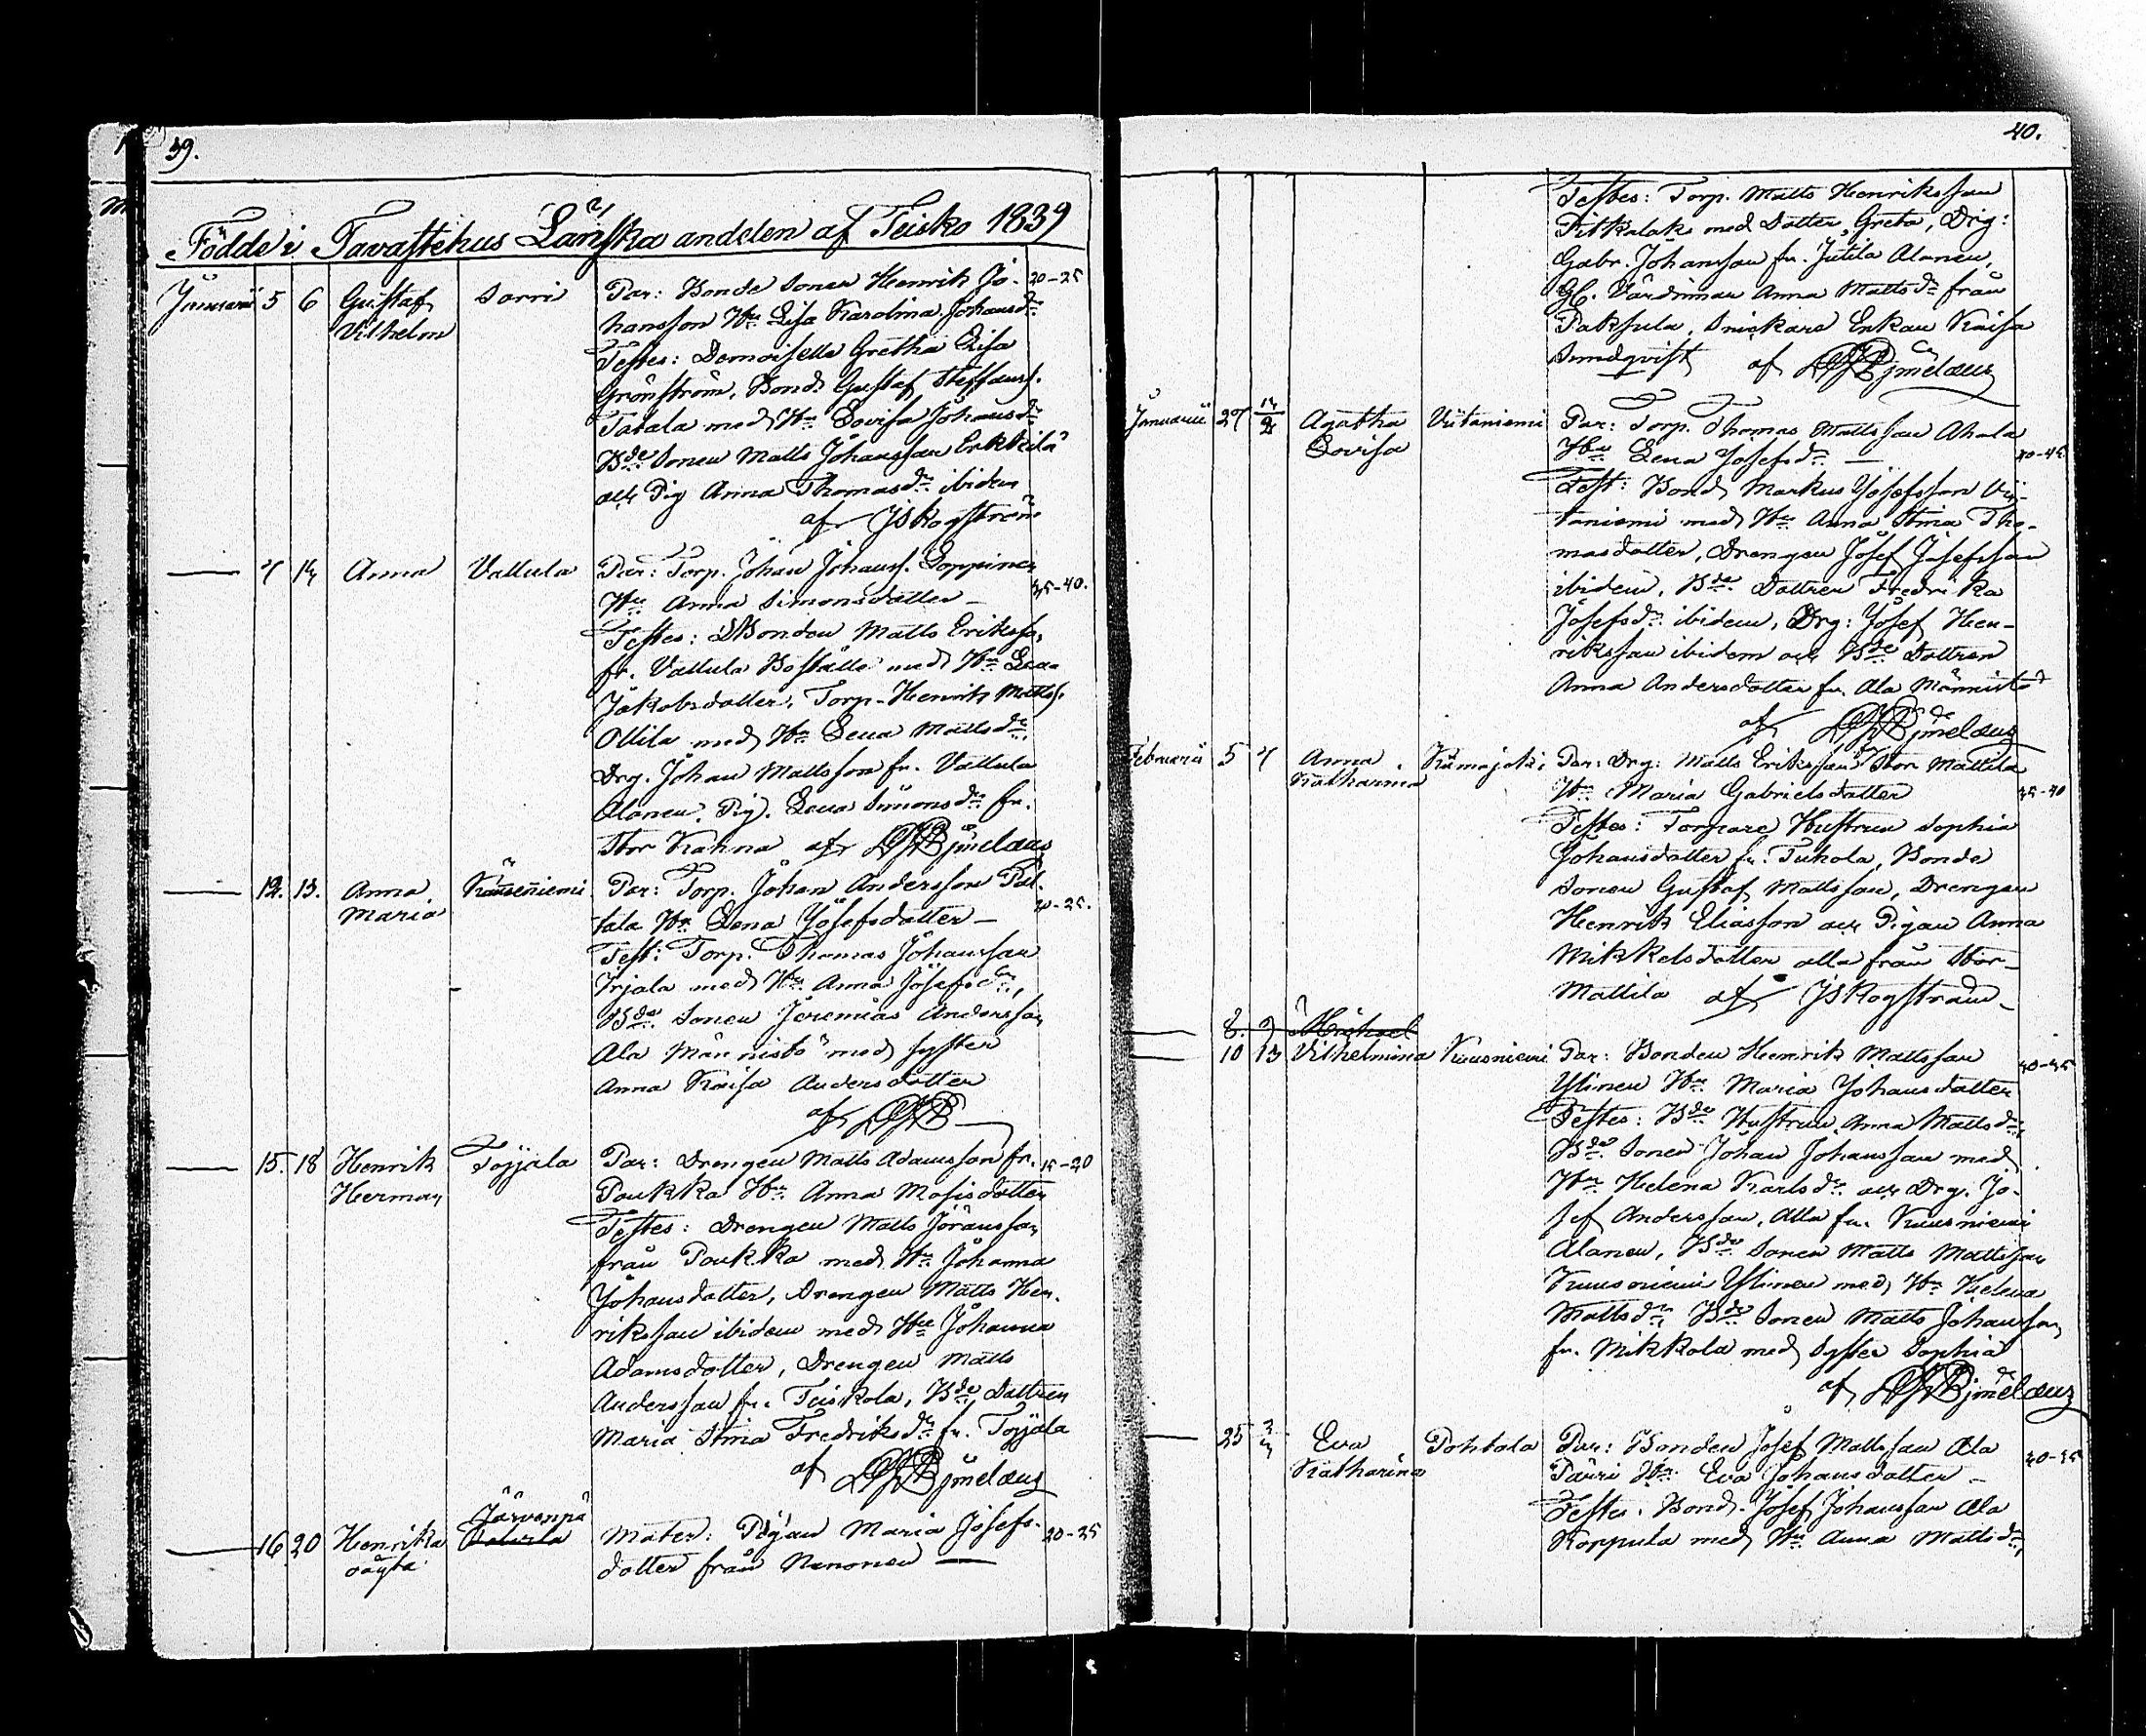 39.
Födde i Tavastehus Länska andelen af Teisko 1839
Januarii 5 6 Gustaf Vilhelm Sorri
Par: Bonde Sonen Henrik Jo- 20-25
hansson Hu Lisa Karolina Johansdr
Testes: Demoiselle Gretha Lisa
Grönström, Bond Gustaf Steffanss.
Tatala med Hu Lovisa Johansdr
Bde Sonen Matts Johansson Erkkilä
och Pig Anna Thomasdr ibidem
af JS Rogström
7 14 Anna Vattula
Par: Torp. Johan Johanss. Loppinen
Hu Anna Simonsdotter 35-40.
Testes: Bonden Matts Eriksson
fr. Vattula Boställe med Hu Lena
Jakobsdotter, Torp. Henrik Mattss.
Ollila med Hu Lena Mattsdr
Drg. Johan Mattsson fr. Vattula
Alanen, Pig. Lena Simonsdr fr.
Stor Kahna af Bjmelæus
12. 13. Anna Maria
Par: Torp. Johan Andersson Pal-
tala Hu Lena Josefsdotter 20-25.
Test: Torp. Thomas Johansson
Yrjala med Hu Anna Josefsdr,
Bde Sonen Jeremias Andersson
Ala Männistö med syster
Anna Kaisa Andersdotter
af
15. 18 Henrik Herman Toijala
Par: Drengen Matts Adamsson fr. 15-20
Poukka Hu Anna Mosisdotter
Testes: Drengen Matts Göransson
från Poukka med Hu Johanna
Johansdotter, Drengen Matts Hen-
riksson ibidem med Hu Johanna
Adamsdotter, Drengen Matts
Andersson fr. Teiskola, Bde Dottren
Maria Stina Fredriksdr fr. Toijala
af Bjmelæus
16 20 Henrika oägta Järvenpä
Mater: Pigan Maria Josefs- 20-25
dotter från Nenonen
40.
Testes: Torp. Matts Henriksson
Pitkalaks med Dotter Greta, Drg:
Gabr. Johansson fr. Jutila Alanen,
Gl. Värdinnan Anna Mattsdr från
Paksula, Snickare Enkan Kaisa
Sundqvist af Bjmelæus
Januarii 27 Agatha Lovisa Viitaniemi
Par: Torp. Thomas Mattsson Ahala
Hu Lena Josefsdr 40-45
Test: Bond Markus Josefsson Vii-
taniemi med Hu Anna Stina Tho-
masdotter, Drengen Josef Josefsson
ibidem, Bde Dottren Fredrika
Josefsdr ibidem, Drg: Josef Hen-
riksson ibidem och Bde Dottren
Anna Andersdotter fr. Ala Männistö
af Bjmelæus
Februarii 5 7 Anna Katharina Kämajoki
Par: Drg: Matts Eriksson Stor Mattila
Hu Maria Gabrielsdotter 35-40
Testes: Torpare Hustrun Sophia
Johansdotter fr. Tuhola, Bonde
Sonen Gustaf Mattsson, Drengen
Henrik Eliasson och Pigan Anna
Mikkelsdotter alla från Stor-
Mattila af JS Rogström
8. 9 Michael
10 13 Vilhelmina Kuusniemi
Par: Bonden Henrik Mattsson
Ylinen Hu Maria Johansdotter
Testes: Bde Hustrun Anna Mattsdr,
Bde Sonen Johan Johansson med
Hu Helena Karlsdr och Drg. Jo-
sef Andersson, Alla fr. Kuusniemi
Alanen, Bde Sonen Matts Mattsson
Kuusniemi Ylinen med Hu Helena
Mattsdr, Bde Sonen Matts Johansson
fr. Mikkola med Syster Sophia
af Bjmelæus
25 2/3 Eva Katharina Pohtola
Par: Bonden Josef Mattsson Ala
Pauri Hu Eva Johansdotter
Testes. Bond. Josef Johansson Ala
Korpula med Hu Anna Mattsdr,